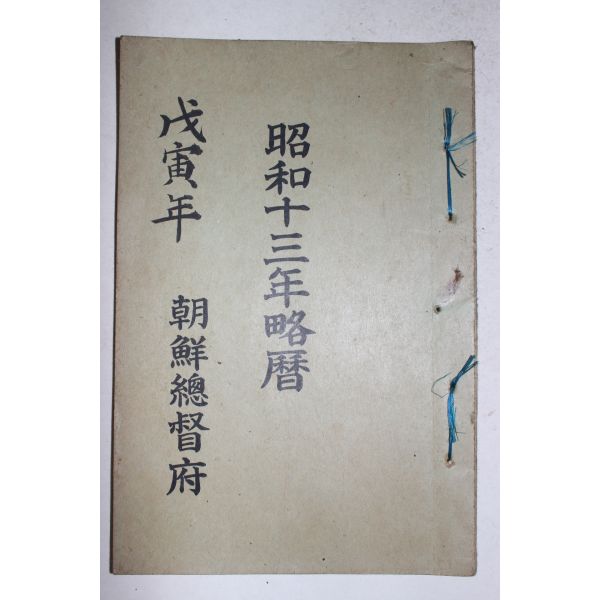 昭和十三年略暦
戊寅年 朝鮮總督府